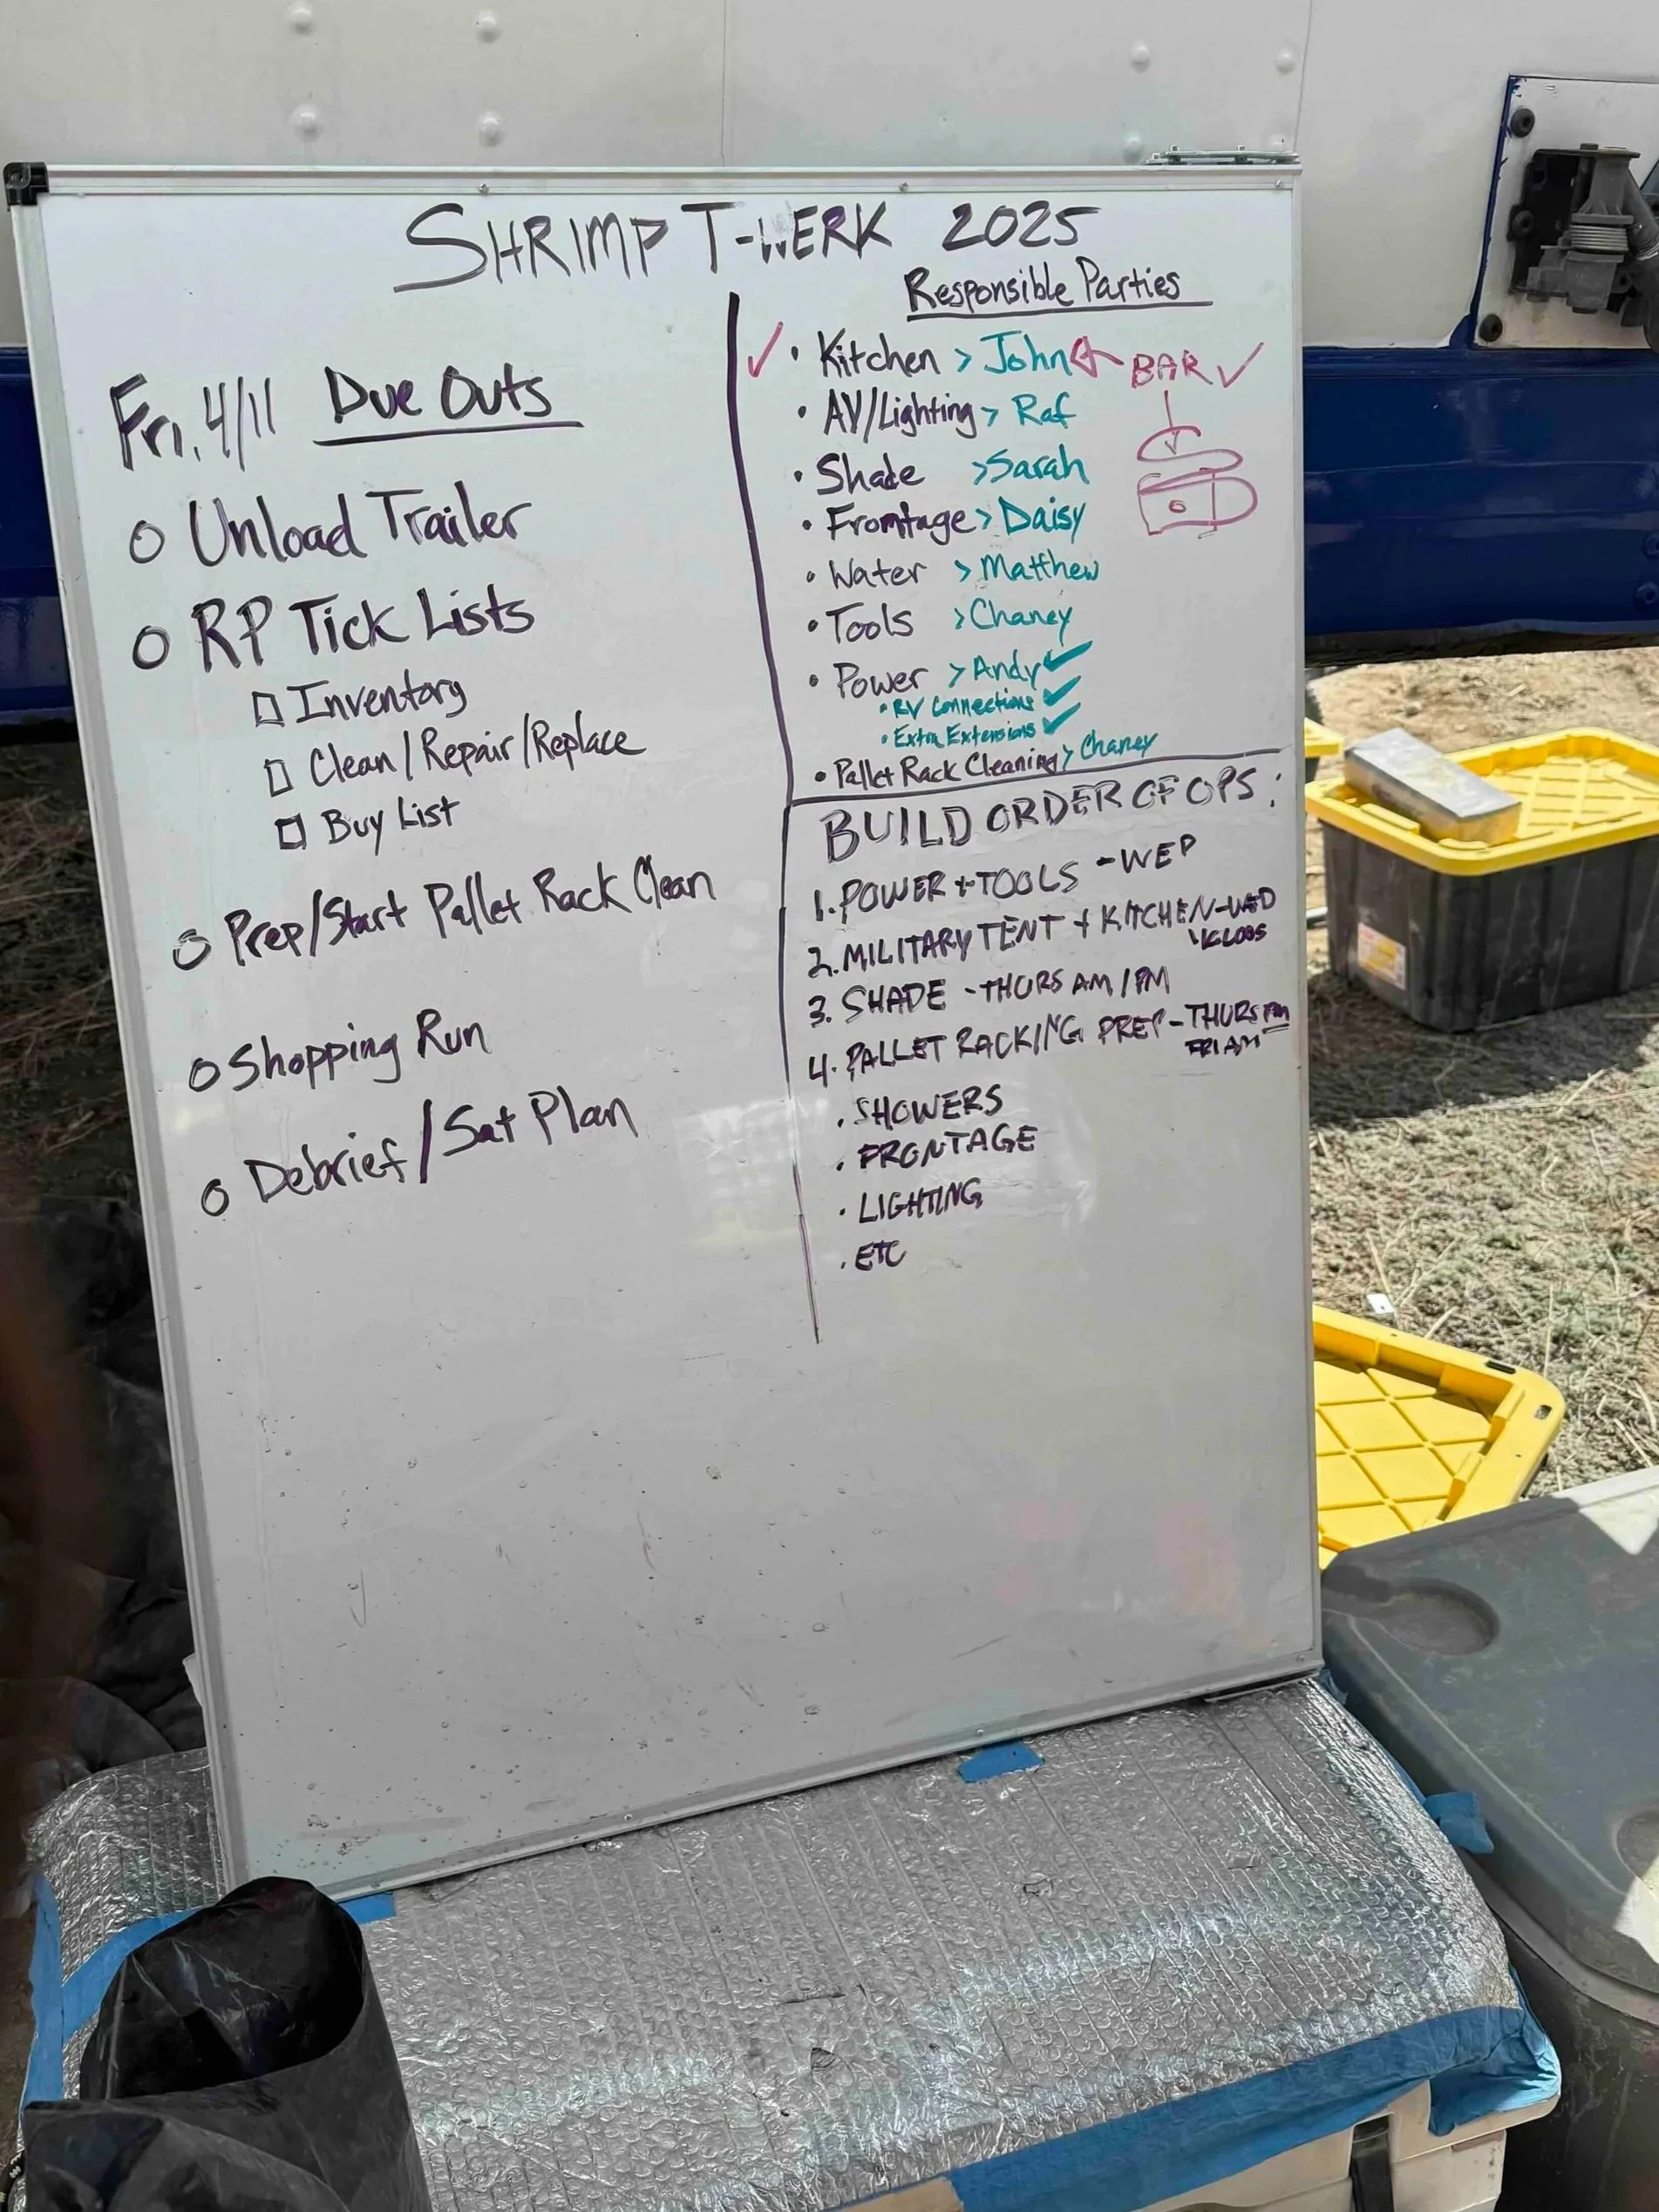 SHRIMP T-WERK 2025
Fri. 4/11 Due Outs
O Unload Trailer
O RP Tick Lists
□ Inventory
□ Clean/Repair/Replace
□ Buy List
O Prep/Start Pallet Rack Clean
O Shopping Run
O Debrief/Sat Plan
Responsible Parties
✓ • Kitchen > John ← BAR ✓
• AV/Lighting > Raf
• Shade > Sarah
• Frontage > Daisy
• Water > Matthew
• Tools > Chaney
• Power > Andy ✓
• RV Connections ✓
• Extra Extensions ✓
• Pallet Rack Cleaning > Chaney
BUILD ORDER OF OPS:
1. POWER + TOOLS - WED
2. MILITARY TENT + KITCHEN - WED
3. SHADE - THURS AM/PM
4. PALLET RACKING PREP - THURS PM
FRI AM
• SHOWERS
• FRONTAGE
• LIGHTING
• ETC